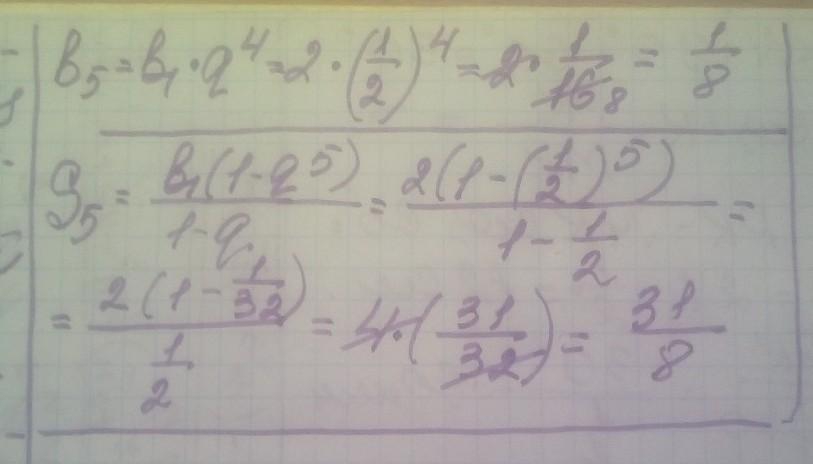 b₅ = b₁ · q⁴ = 2 · (1/2)⁴ = 2 · 1/16 8 = 1/8
S₅ = b₁(1-q⁵)/1-q = 2(1-(1/2)⁵)/1-1/2 =
= 2(1-1/32)/1/2 = 4·(31/32) = 31/8